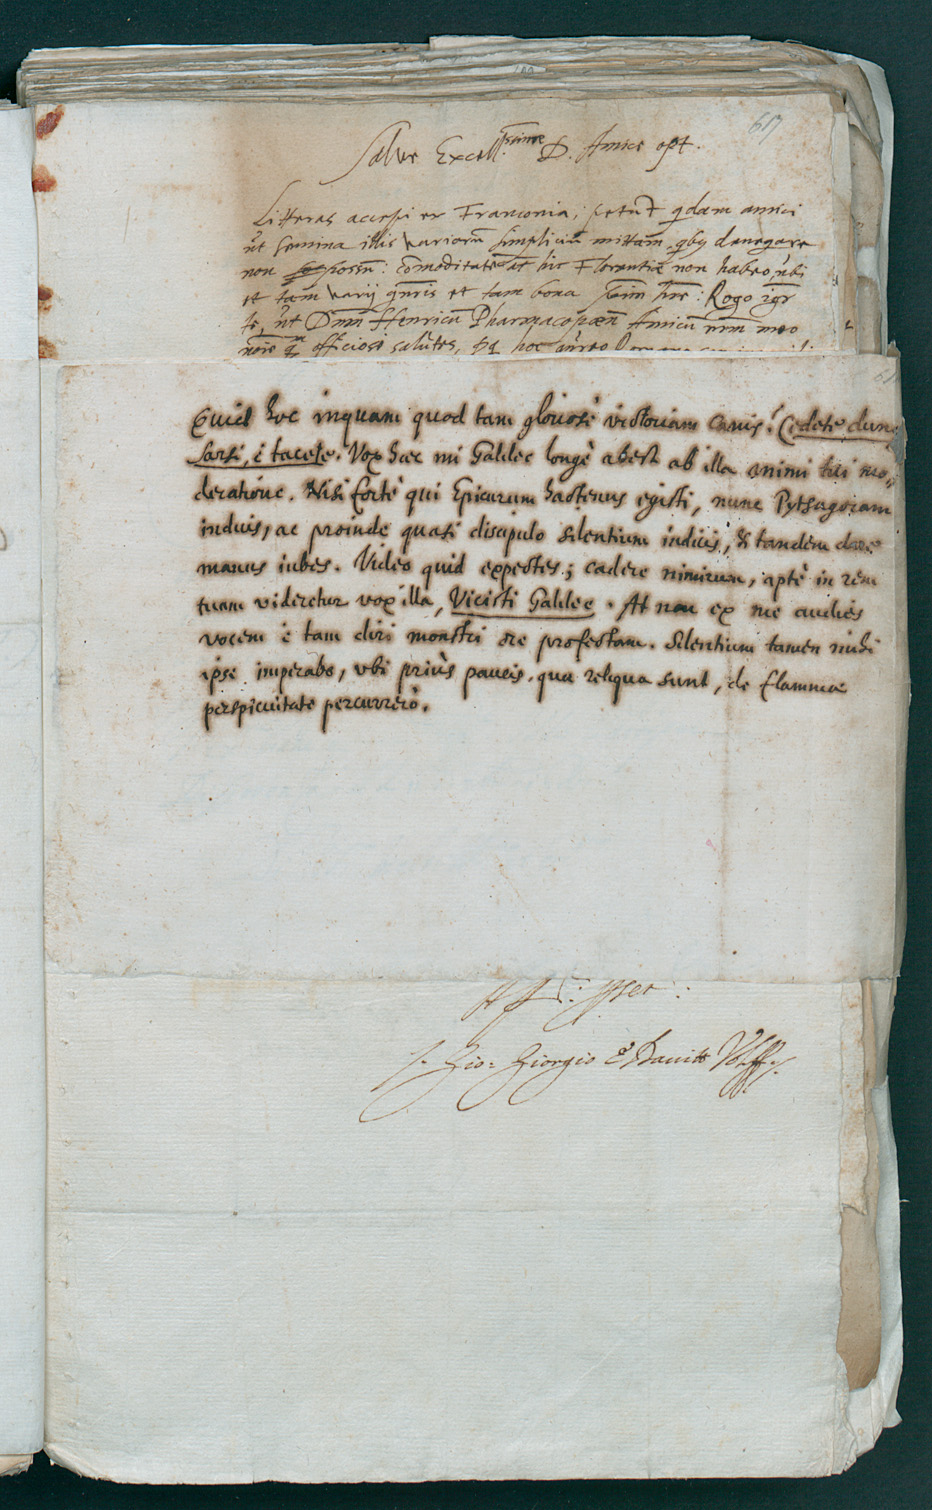 617
Salve Excell.ssime D. Amice opt.
Litteras accepi ex Franconia; petunt qdam amici
ut semina illis variorũ simpliciũ mittam, qby denegare
non possum: comoditatẽ hic Florentiæ non habeo, ubi
et tam varij gñris et tam bona : Rogo igr
te, ut Dnm Henricũ Pharmacopæũ Amicũ nrm meo
noĩe officiose salutes, hoc
Quid hoc inquam quod tam gloriosè victoriam canis? Cedete dunq
Sarsi, è tacete. Vox hæc mi Galilee longè abest ab illa animi tui mo„
deratione. Nisi fortè qui Epicurum hactenus egisti, nunc Pythagoram
induis, ac proinde quasi discipulo silentium indicis, & tandem dare
manus iubes. Video quid expectes; cadere nimirum, aptè in rem
tuam videretur vox illa, Vicisti Galilee. At non ex me audies
vocem è tam diri monstri ore profectam. Silentium tamen mihi
ipse imperabo, vbi priùs paucis, quæ reliqua sunt, de flammæ
perspicuitate percurrero.
Gio: Giorgio Volff